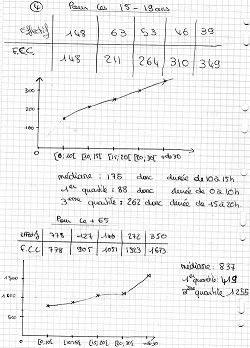 ④ Pour les 15 - 19 ans
effectif 148 63 53 46 39
F.C.C. 148 211 264 310 349
300
200
100
[0; 10[ [10, 15[ [15, 20[ [20, 30[ + de 30
médiane : 175 donc durée de 10 à 15h
1er quartile : 88 donc durée de 0 à 10h
3ème quartile : 262 donc durée de 15 à 20h
Pour les + 65
effectif 778 127 146 272 350
F.C.C. 778 905 1051 1323 1673
médiane : 837
1er quartile : 419
3ème quartile 1255
1500
1000
500
[0, 10[ [10, 15[ [15, 20[ [20, 30[ + de 30